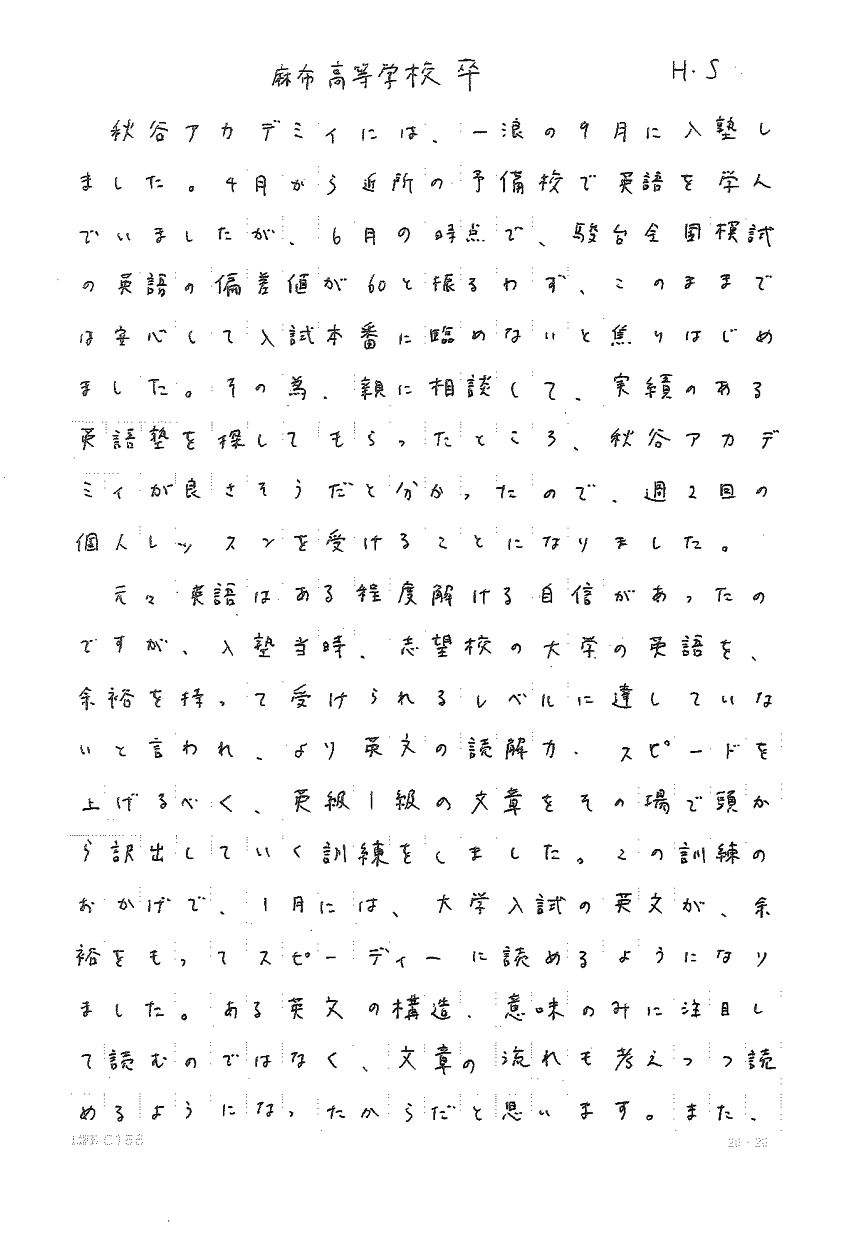 麻布高等学校 卒 H.S
秋谷アカデミィには、一浪の9月に入塾し
ました。4月から近所の予備校で英語を学ん
でいましたが、6月の時点で、駿台全国模試
の英語の偏差値が60と振るわず、このままで
は安心して入試本番に臨めないと焦りはじめ
ました。その為、親に相談して、実績のある
英語塾を探してもらったところ、秋谷アカデ
ミィが良さそうだと分かったので、週2回の
個人レッスンを受けることになりました。
元々英語はある程度解ける自信があったの
ですが、入塾当時、志望校の大学の英語を、
余裕を持って受けられるレベルに達していな
いと言われ、より英文の読解力・スピードを
上げるべく、英級1級の文章をその場で頭か
ら訳出していく訓練をしました。この訓練の
おかげで、1月には、大学入試の英文が、余
裕をもってスピーディーに読めるようになり
ました。ある英文の構造、意味のみに注目し
て読むのではなく、文章の流れも考えつつ読
めるようになったからだと思います。また、
LIFE C155 20×20